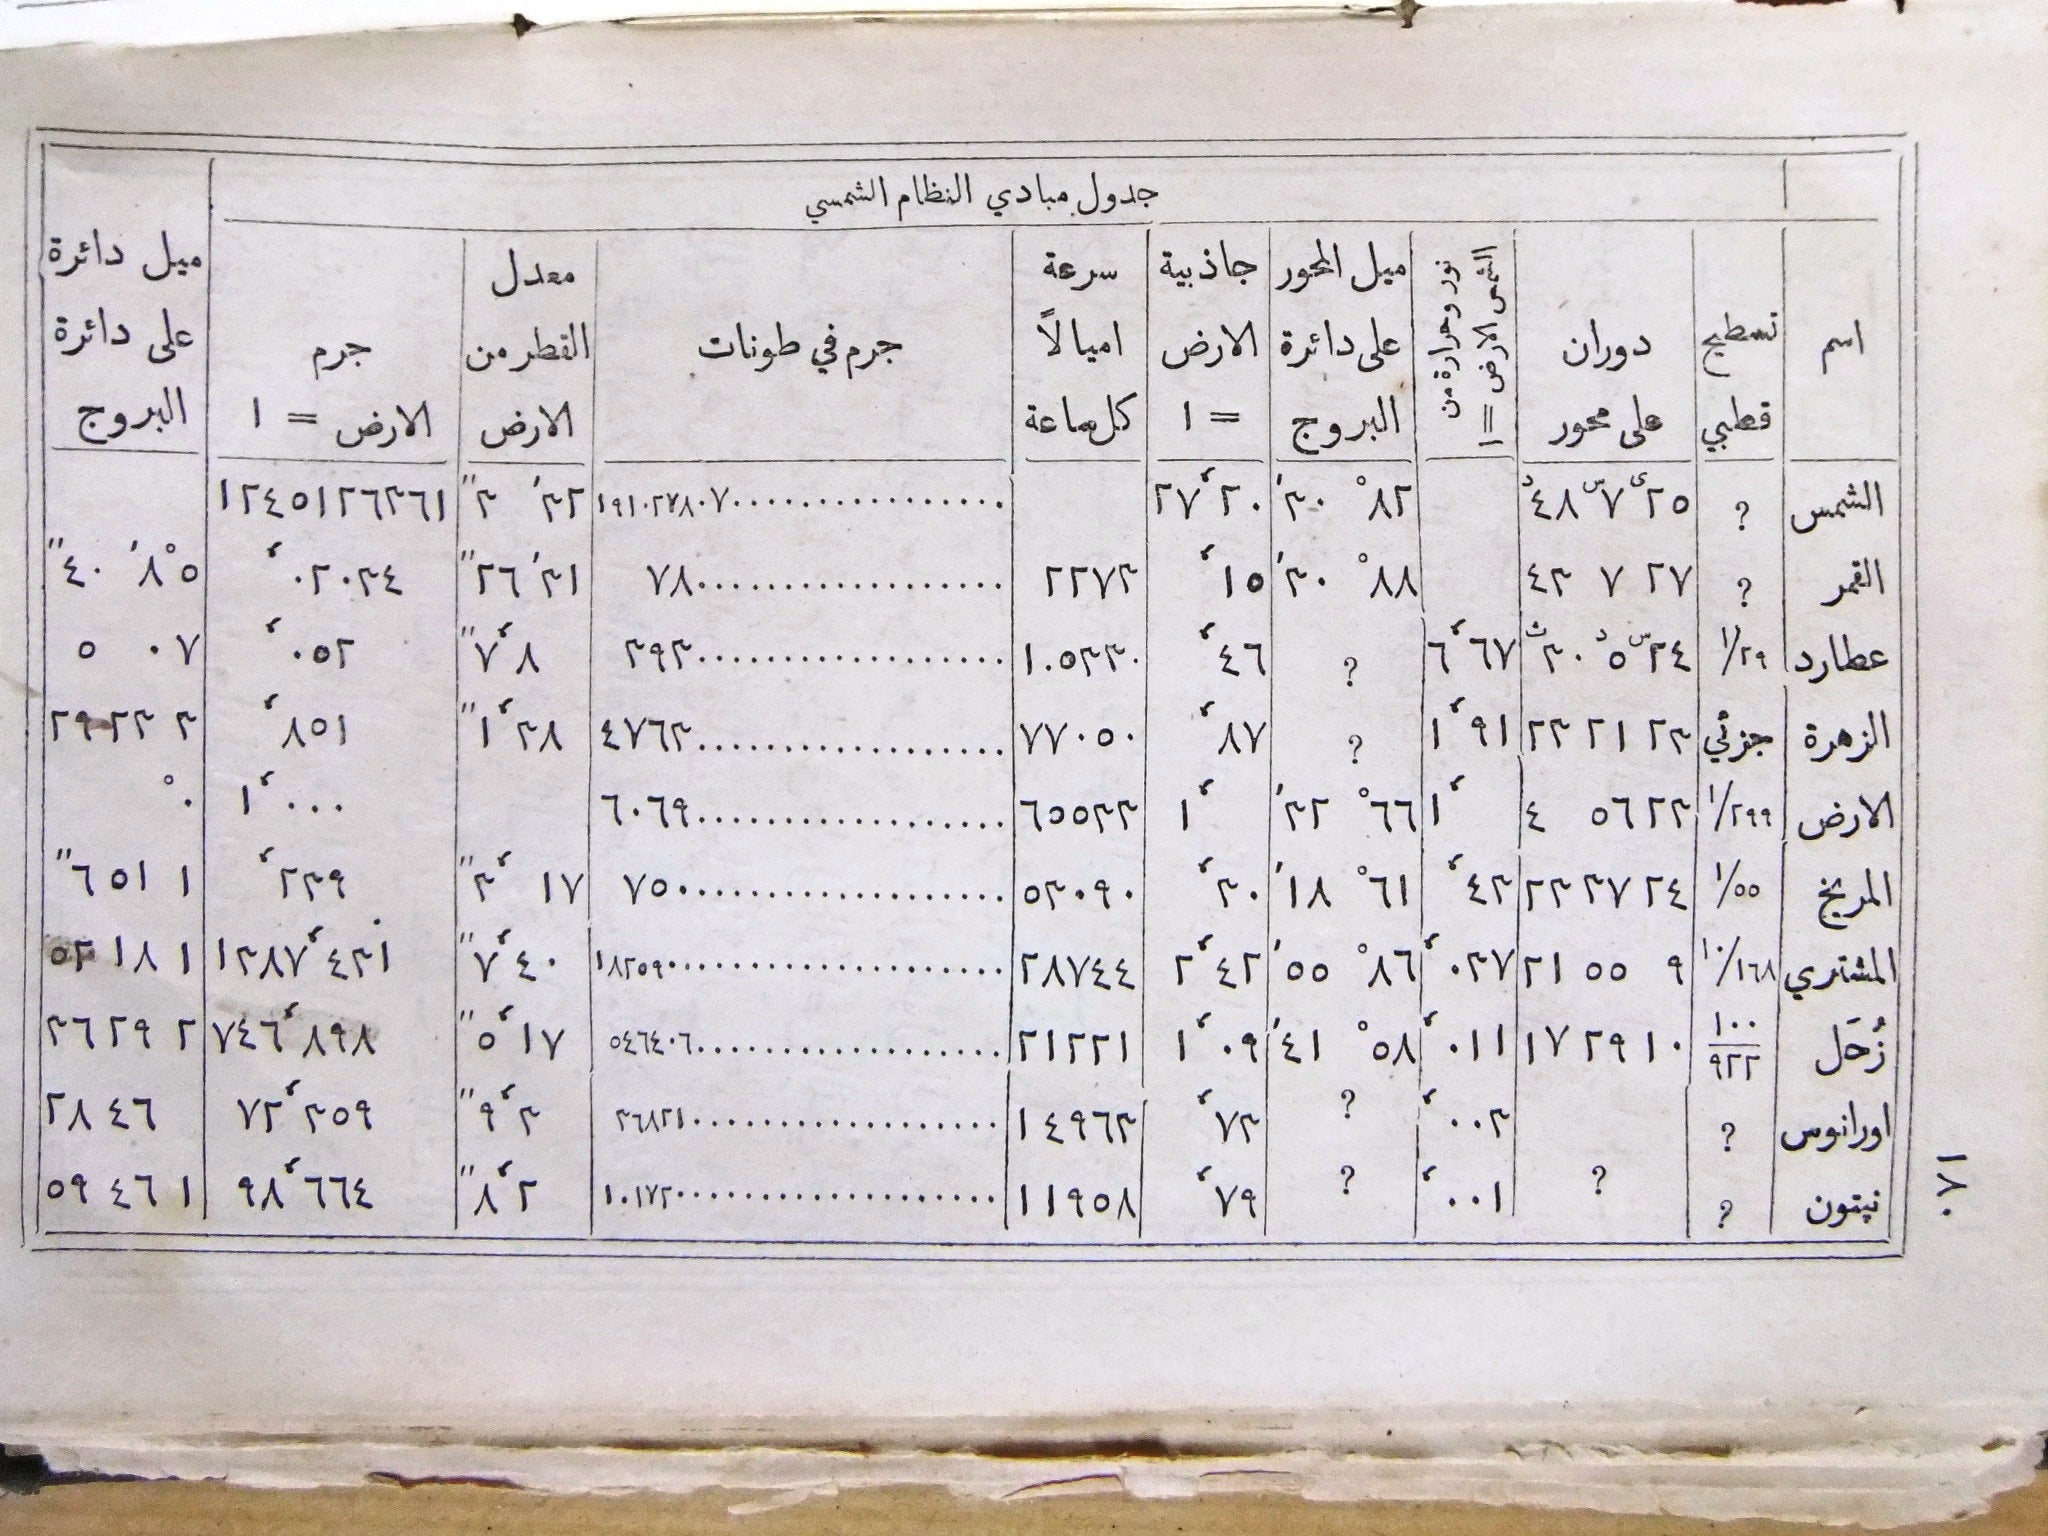 جدول مبادي النظام الشمسي
اسم | تسطيح قطبي | دوران على محور | نور وحرارة من الشمس الارض = ١ | ميل المحور على دائرة البروج | جاذبية الارض = ١ | سرعة اميالاً كل ساعة | جرم في طونات | معدل القطر من الارض | جرم الارض = ١ | ميل دائرة على دائرة البروج
الشمس | ? | ٢٥ى ٧س ٤٨د | | ٨٢° ٣٠′ | ٢٧٬٢٠ | | ١٩١٠٢٧٨٠٧.................. | ٣٢′ ٣″ | ١٢٤٥١٢٦٣٦١ |
القمر | ? | ٢٧ ٧ ٤٣ | | ٨٨° ٣٠′ | ٬١٥ | ٢٢٧٣ | ٧٨.................. | ٣١′ ٢٦″ | ٬٠٢٠٣٤ | ٥° ٨′ ٤٠″
عطارد | ١/٢٩ | ٢٤س ٥د ٣٠ث | ٦٬٦٧ | ? | ٬٤٦ | ١٠٥٣٣٠ | ٣٩٣.................. | ٨٬٧″ | ٬٠٥٢ | ٧ ٠ ٥
الزهرة | جزئي | ٢٣ ٢١ ٢٣ | ١٬٩١ | ? | ٬٨٧ | ٧٧٠٥٠ | ٤٧٦٣.................. | ١٬٣٨″ | ٬٨٥١ | ٣ ٢٣ ٢٩
الارض | ١/٢٩٩ | ٢٣ ٥٦ ٤ | ١٬ | ٦٦° ٣٢′ | ١٬ | ٦٥٥٣٣ | ٦٠٦٩.................. | | ١٬٠٠٠ | ٠°
المريخ | ١/٥٥ | ٢٤ ٣٧ ٢٣ | ٬٤٣ | ٦١° ١٨′ | ٬٣٠ | ٥٣٠٩٠ | ٧٥٠.................. | ٣٬١٧″ | ٬٢٣٩ | ١ ٥١ ٦″
المشتري | ١٠/١٦٨ | ٩ ٥٥ ٢١ | ٬٠٣٧ | ٨٦° ٥٥′ | ٢٬٤٢ | ٢٨٧٤٤ | ١٨٢٥٩٠.................. | ٧٬٤٠″ | ١٣٨٧٬٤٣١ | ١ ١٨ ٥٢
زُحَل | ١٠٠/٩٢٢ | ١٠ ٢٩ ١٧ | ٬٠١١ | ٥٨° ٤١′ | ١٬٠٩ | ٢١٢٢١ | ٥٤٦٤٠٦.................. | ٥٬١٧″ | ٧٤٦٬٨٩٨ | ٢ ٢٩ ٣٦
اورانوس | ? | | ٬٠٠٣ | ? | ٬٧٣ | ١٤٩٦٣ | ٣٦٨٢١.................. | ٩٬٣″ | ٧٢٬٣٥٩ | ٤٦ ٢٨
نپتون | ? | ? | ٬٠٠١ | ? | ٬٧٩ | ١١٩٥٨ | ١٠١٧٢.................. | ٨٬٢″ | ٩٨٬٦٦٤ | ١ ٤٦ ٥٩
٠٧١